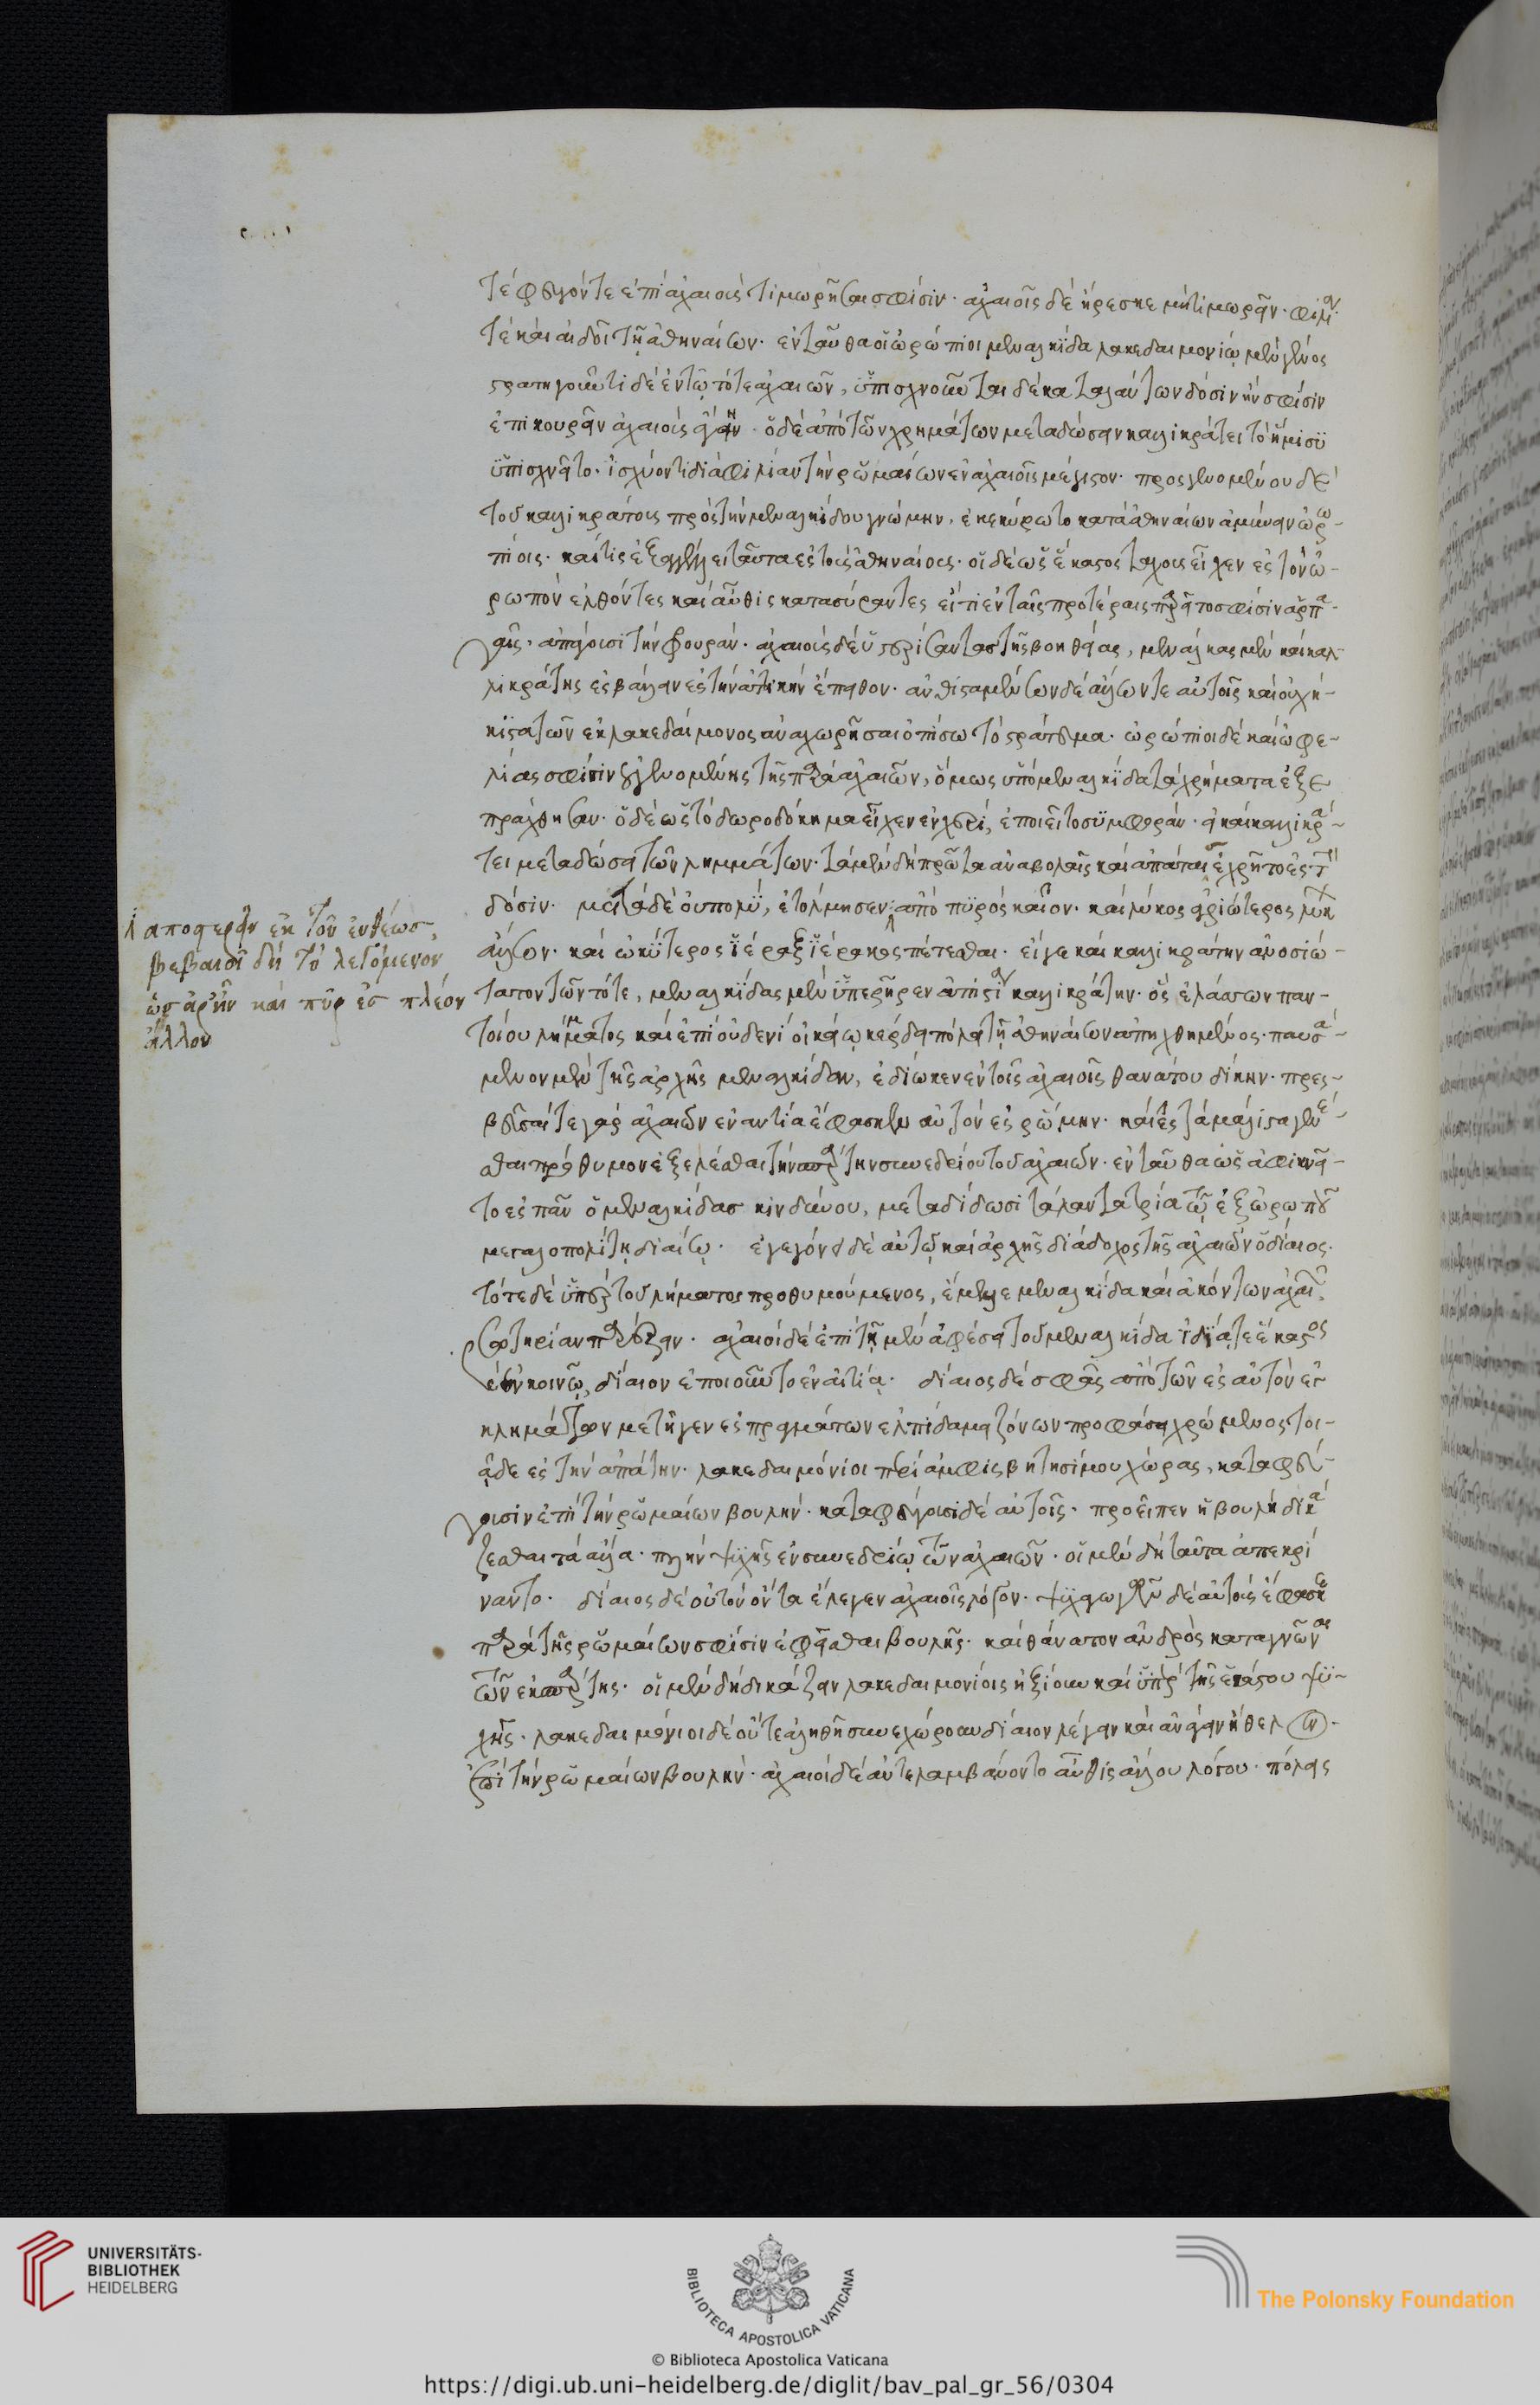 τέφευγόντε ἐπὶ ἀχαιοὺς τιμωρῆσαι σφίσιν. ἀχαιοῖς δὲ ἤρεσκε μὴ τιμωρεῖν. φιλία
τε καὶ αἰδοῖ τῇ ἀθηναίων. ἐνταῦθα οἱ ὠρώπιοι μεναλκίδα λακεδαιμονίῳ μὲν γένος
στρατηγοῦντι δὲ ἐν τῷ τότε ἀχαιῶν, ὑπισχνοῦνται δέκα ταλάντων δόσιν ἤν σφίσιν
ἐπικουρεῖν ἀχαιοὺς ἀγάγῃ. ὁ δὲ ἀπὸ τῶν χρημάτων μεταδώσειν καλλικράτει τὸ ἥμισυ
ὑπισχνεῖτο. ἰσχύοντι διὰ φιλίαν τὴν ῥωμαίων ἐν ἀχαιοῖς μέγιστον. προσγενομένου δὲ
τοῦ καλλικράτους πρὸς τὴν μεναλκίδου γνώμην, ἐκεκύρωτο κατὰ ἀθηναίων ἀμύνειν ὠρω-
πίοις. καὶ τις ἐξαγγέλλει ταῦτα ἐς τοὺς ἀθηναίους. οἱ δὲ ὡς ἕκαστος τάχους εἶχεν ἐς τὸν ὠ-
ρωπὸν ἐλθόντες καὶ αὖθις κατασύραντες εἴ τι ἐν ταῖς προτέραις παρεῖτο σφίσιν ἁρπα-
γαῖς, ἀπάγουσι τὴν φρουράν. ἀχαιοὺς δὲ ὑστερίσαντας τῆς βοηθείας, μεναλκίδας μὲν καὶ καλ-
λικράτης ἐσβάλλειν ἐς τὴν ἀττικὴν ἔπειθον. ἀνθισταμένων δὲ ἄλλων τε αὐτοῖς καὶ οὐχ ἥ-
κιστα τῶν ἐκ λακεδαίμονος ἀναχωρῆσαι ὀπίσω τὸ στράτευμα. ὠρώπιοι δὲ καὶ ὠφε-
λίας σφίσιν οὐ γενομένης τῆς παρὰ ἀχαιῶν, ὅμως ὑπὸ μεναλκίδα τὰ χρήματα ἐξε
πράχθησαν. ὁ δὲ ὡς τὸ δωροδόκημα εἶχεν ἐν χερσί, ἐποιεῖτο συμφοράν. εἰ καὶ καλλικρά-
τει μεταδώσει τῶν λημμάτων. τὰ μὲν δὴ πρῶτα ἀναβολαῖς καὶ ἀπάταις ἐχρῆτο ἐς τὴν
δόσιν. μετὰ δὲ οὐ πολὺ, ἐτόλμησεν ἀπὸ πῦρος καῖον. καὶ λύκος ἀγριώτερος λύκων
ἄλλων. καὶ ὠκύτερος ἱέραξ ἱέρακος πέτεσθαι. εἴ γε καὶ καλλικράτην ἀνοσιώ-
τατον τῶν τότε, μεναλκίδας μὲν ὑπερῆρεν ἀπιστία καλλικράτην. ὃς ἐλάσσων παν-
τοίου λήμματος καὶ ἐπὶ οὐδενὶ οἰκείῳ κέρδει πόλει τῇ ἀθηναίων ἀπηχθημένος. παυσά-
μενον μὲν τῆς ἀρχῆς μεναλκίδαν, ἐδίωκεν ἐν τοῖς ἀχαιοῖς θανάτου δίκην. πρεσ-
βεῦσαί τε γὰρ ἀχαιῶν ἐναντία ἔφασκεν αὐτὸν ἐς ῥώμην. καὶ ἐς τὰ μάλιστα γενέ-
σθαι πρόθυμον ἐξελέσθαι τὴν σπάρτην συνεδρίου τοῦ ἀχαιῶν. ἐνταῦθα ὡς ἀφικνεῖ-
το ἐς πᾶν ὁ μεναλκίδας κινδύνου, μεταδίδωσι τάλαντα τρία τῶν ἐξ ὠρωποῦ
μεγαλοπολίτῃ διαίῳ. ἐγεγόνει δὲ αὐτῷ καὶ ἀρχῆς διάδοχος τῆς ἀχαιῶν ὁ δίαιος.
τότε δὲ ὑπὲρ τοῦ λήματος προθυμούμενος, ἔμελλε μεναλκίδα καὶ ἀκόντων ἀχαιῶν
σωτηρίαν παρέξειν. ἀχαιοὶ δὲ ἐπὶ τῇ μὲν ἀφέσει τοῦ μεναλκίδα ἰδίᾳ τε ἕκαστος
ἐν κοινῷ, δίαιον ἐποιοῦντο ἐν αἰτίᾳ. δίαιος δὲ σφᾶς ἀπὸ τῶν ἐς αὐτὸν ἐγ
κλημάτων μετῆγεν ἐς πραγμάτων ἐλπίδα μειζόνων προφάσει χρώμενος τοι-
ᾷδε ἐς τὴν ἀπάτην. λακεδαιμόνιοι περὶ ἀμφισβητησίμου χώρας, καταφεύ-
γουσιν ἐπὶ τὴν ῥωμαίων βουλήν. καταφεύγουσι δὲ αὐτοῖς. προεῖπεν ἡ βουλὴ δικά
ζεσθαι τὰ ἄλλα. πλὴν ψυχῆς ἐν συνεδρίῳ τῶν ἀχαιῶν. οἱ μὲν δὴ ταῦτα ἀπεκρί
ναντο. δίαιος δὲ οὐ τὸν ὄντα ἔλεγεν ἀχαιοῖς λόγον. ψυχαγωγῶν δὲ αὐτοὺς ἔφασκε
παρὰ τῆς ῥωμαίων σφίσιν ἐφεῖσθαι βουλῆς. καὶ θάνατον ἀνδρὸς καταγνῶναι
τῶν ἐκ σπάρτης. οἱ μὲν δὴ δικάζειν λακεδαιμονίοις ἠξίουν καὶ ὑπὲρ τῆς ἑκάστου ψυ-
χῆς. λακεδαιμόνιοι δὲ οὔτε ἀληθῆ συνεχώρουν δίαιον λέγειν καὶ ἀνάγειν ἤθελον
ἐπὶ τὴν ῥωμαίων βουλήν. ἀχαιοὶ δὲ ἀντελαμβάνοντο αὖθις ἄλλου λόγου. πόλεις
ἀποφερεῖν ἐκ τοῦ εὐθέως,
βεβαιοῖ δὴ τὸ λεγόμενον
ὡς ἄρ ἦν καὶ πῦρ ἐς πλέον
ἄλλου
UNIVERSITÄTS-
BIBLIOTHEK
HEIDELBERG
BIBLIOTECA APOSTOLICA VATICANA
© Biblioteca Apostolica Vaticana
The Polonsky Foundation
https://digi.ub.uni-heidelberg.de/diglit/bav_pal_gr_56/0304